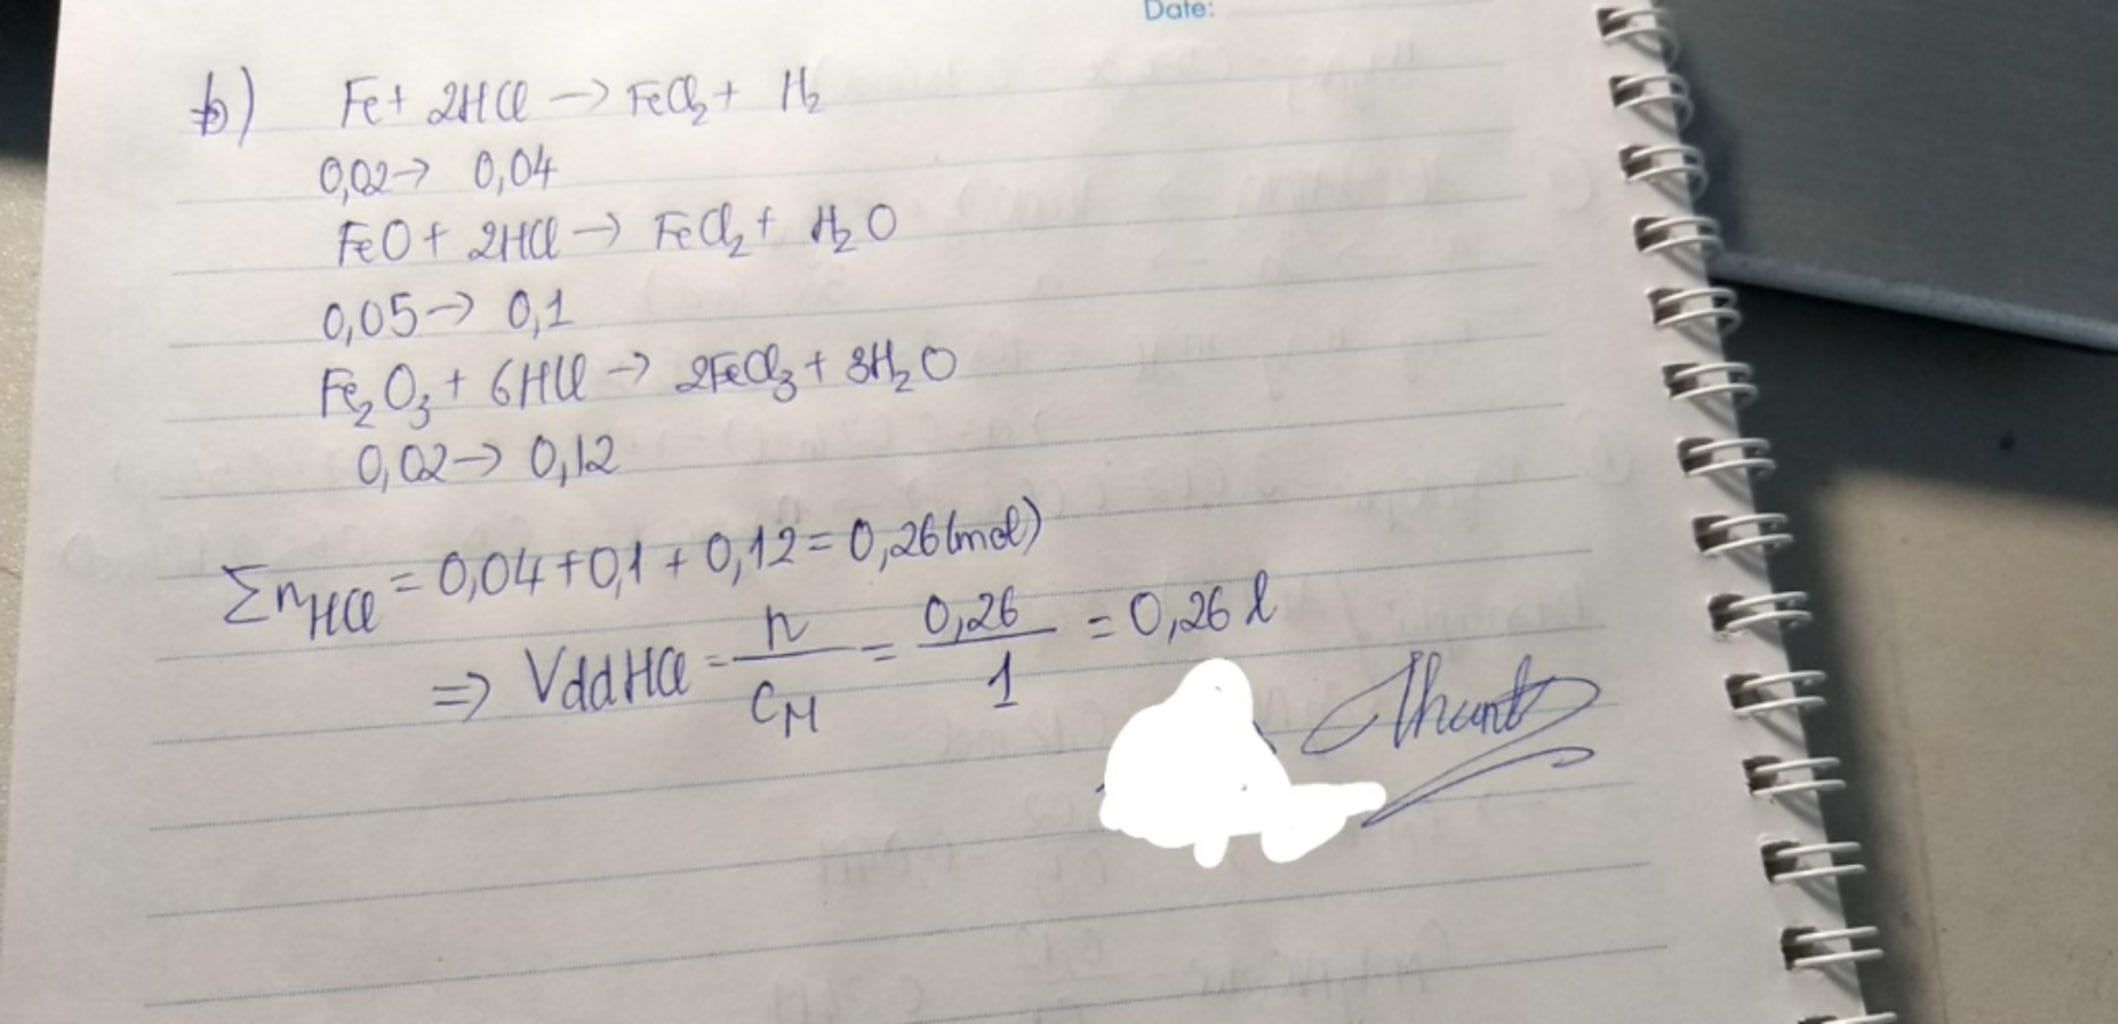 Date:
b) Fe + 2HCl → FeCl₂ + H₂
0,02 → 0,04
FeO + 2HCl → FeCl₂ + H₂O
0,05 → 0,1
Fe₂O₃ + 6HCl → 2FeCl₃ + 3H₂O
0,02 → 0,12
Σn_HCl = 0,04 + 0,1 + 0,12 = 0,26 (mol)
⇒ VddHCl = n/C_M = 0,26/1 = 0,26 l